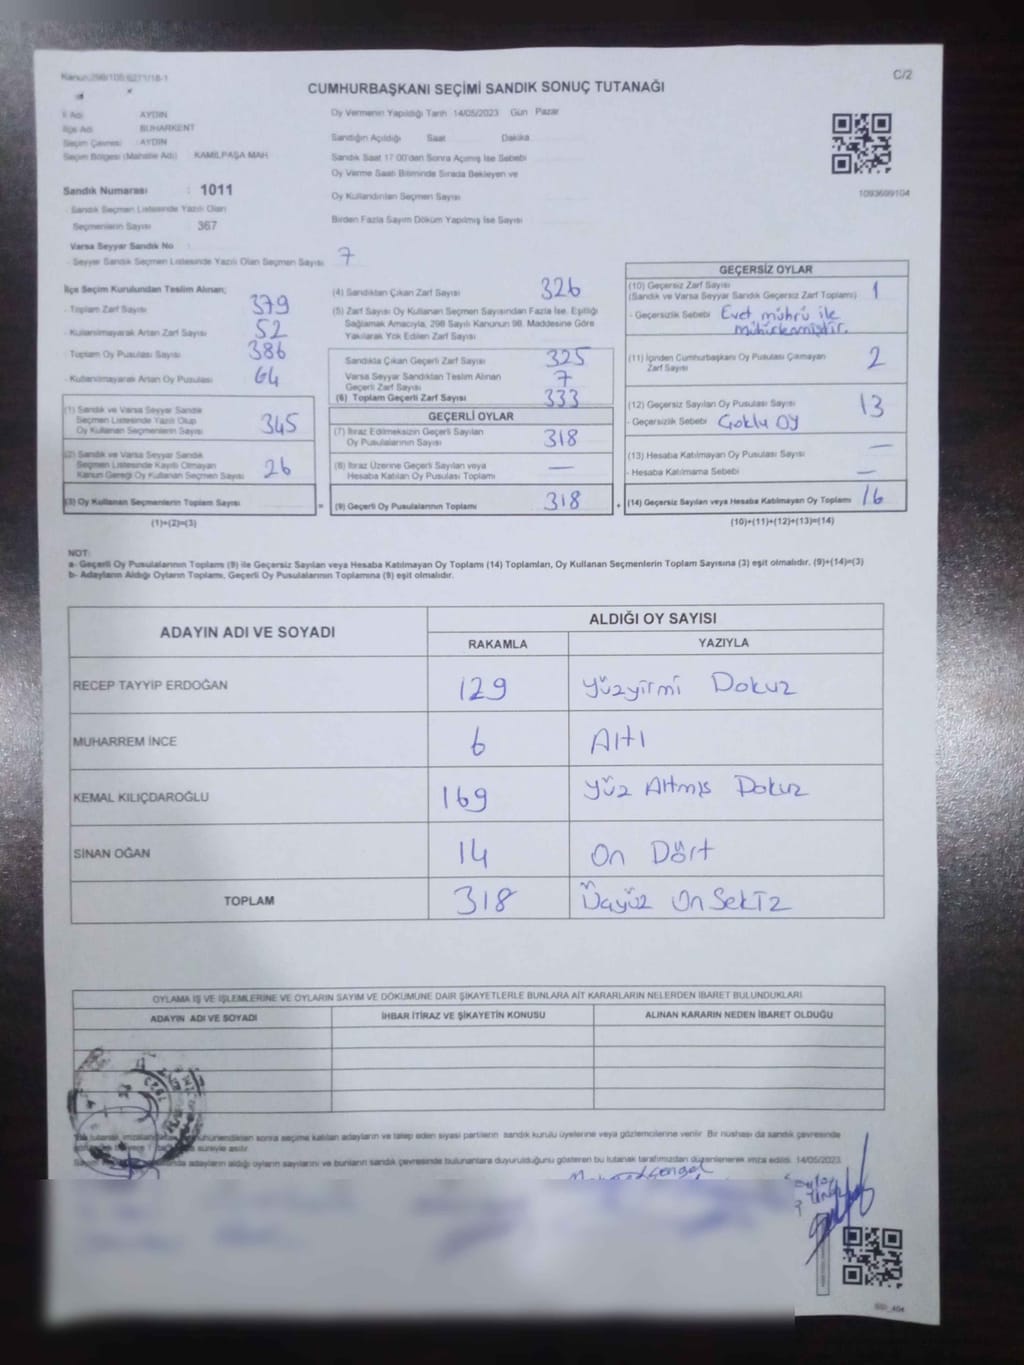 Kanun:298/105;6271/18-1
C/2
CUMHURBAŞKANI SEÇİMİ SANDIK SONUÇ TUTANAĞI
İl Adı : AYDIN
İlçe Adı : BUHARKENT
Seçim Çevresi : AYDIN
Seçim Bölgesi (Mahalle Adı) : KAMİLPAŞA MAH
Sandık Numarası : 1011
- Sandık Seçmen Listesinde Yazılı Olan
Seçmenlerin Sayısı : 367
Varsa Seyyar Sandık No :
- Seyyar Sandık Seçmen Listesinde Yazılı Olan Seçmen Sayısı : 7
Oy Vermenin Yapıldığı Tarih 14/05/2023 Gün Pazar
Sandığın Açıldığı Saat Dakika
Sandık Saat 17:00'den Sonra Açılmış İse Sebebi
Oy Verme Saati Bitiminde Sırada Bekleyen ve
Oy Kullandırılan Seçmen Sayısı
Birden Fazla Sayım Döküm Yapılmış İse Sayısı
1093699104
İlçe Seçim Kurulundan Teslim Alınan;
- Toplam Zarf Sayısı 379
- Kullanılmayarak Artan Zarf Sayısı 52
- Toplam Oy Pusulası Sayısı 386
- Kullanılmayarak Artan Oy Pusulası 64
(1) Sandık ve Varsa Seyyar Sandık
Seçmen Listesinde Yazılı Olup
Oy Kullanan Seçmenlerin Sayısı 345
(2) Sandık ve Varsa Seyyar Sandık
Seçmen Listesinde Kayıtlı Olmayan
Kanun Gereği Oy Kullanan Seçmen Sayısı 26
(3) Oy Kullanan Seçmenlerin Toplam Sayısı
(1)+(2)=(3)
(4) Sandıktan Çıkan Zarf Sayısı 326
(5) Zarf Sayısı Oy Kullanan Seçmen Sayısından Fazla İse, Eşitliği
Sağlamak Amacıyla, 298 Sayılı Kanunun 98. Maddesine Göre
Yakılarak Yok Edilen Zarf Sayısı
Sandıkta Çıkan Geçerli Zarf Sayısı 325
Varsa Seyyar Sandıktan Teslim Alınan
Geçerli Zarf Sayısı 7
(6) Toplam Geçerli Zarf Sayısı 333
GEÇERLİ OYLAR
(7) İtiraz Edilmeksizin Geçerli Sayılan
Oy Pusulalarının Sayısı 318
(8) İtiraz Üzerine Geçerli Sayılan veya
Hesaba Katılan Oy Pusulası Toplamı —
= (9) Geçerli Oy Pusulalarının Toplamı 318
GEÇERSİZ OYLAR
(10) Geçersiz Zarf Sayısı
(Sandık ve Varsa Seyyar Sandık Geçersiz Zarf Toplamı) 1
- Geçersizlik Sebebi : Evet mührü ile
mühürlenmiştir.
(11) İçinden Cumhurbaşkanı Oy Pusulası Çıkmayan
Zarf Sayısı 2
(12) Geçersiz Sayılan Oy Pusulası Sayısı 13
- Geçersizlik Sebebi : Çoklu OY
(13) Hesaba Katılmayan Oy Pusulası Sayısı —
- Hesaba Katılmama Sebebi —
+ (14) Geçersiz Sayılan veya Hesaba Katılmayan Oy Toplamı 16
(10)+(11)+(12)+(13)=(14)
NOT:
a- Geçerli Oy Pusulalarının Toplamı (9) ile Geçersiz Sayılan veya Hesaba Katılmayan Oy Toplamı (14) Toplamları, Oy Kullanan Seçmenlerin Toplam Sayısına (3) eşit olmalıdır. (9)+(14)=(3)
b- Adayların Aldığı Oyların Toplamı, Geçerli Oy Pusulalarının Toplamına (9) eşit olmalıdır.
ADAYIN ADI VE SOYADI
ALDIĞI OY SAYISI
RAKAMLA YAZIYLA
RECEP TAYYİP ERDOĞAN 129 Yüzyirmi Dokuz
MUHARREM İNCE 6 Altı
KEMAL KILIÇDAROĞLU 169 Yüz Altmış Dokuz
SİNAN OĞAN 14 On Dört
TOPLAM 318 Üçyüz On Sekiz
OYLAMA İŞ VE İŞLEMLERİNE VE OYLARIN SAYIM VE DÖKÜMÜNE DAİR ŞİKAYETLERLE BUNLARA AİT KARARLARIN NELERDEN İBARET BULUNDUKLARI
ADAYIN ADI VE SOYADI İHBAR İTİRAZ VE ŞİKAYETİN KONUSU ALINAN KARARIN NEDEN İBARET OLDUĞU
sonra seçime katılan adayların ve talep eden siyasi partilerin sandık kurulu üyelerine veya gözlemcilerine verilir. Bir nüshası da sandık çevresinde
süreyle asılır.
adayların aldığı oyların sayılarını ve bunların sandık çevresinde bulunanlara duyurulduğunu gösteren bu tutanak tarafımızdan düzenlenerek imza edildi. 14/05/2023